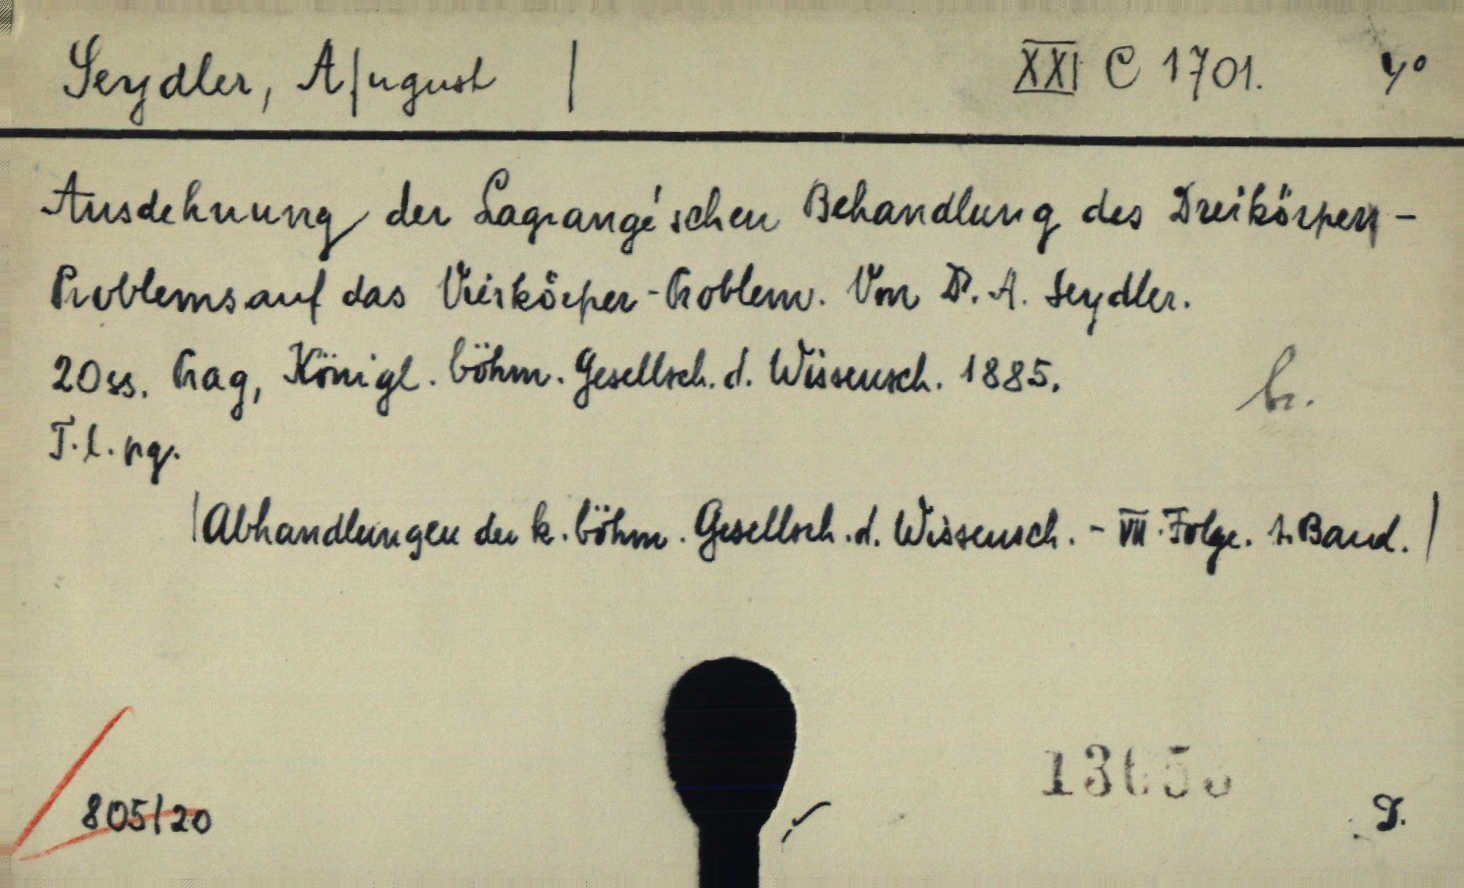 Seydler, A/ugust / XXI C 1701. 4°
Ausdehnung der Lagrange'schen Behandlung des Dreikörper-
Problems auf das Vierkörper-Problem. Von Dr. A. Seydler.
20 ss. Prag, Königl. böhm. Gesellsch. d. Wissensch. 1885.
br.
T. l. pg.
/Abhandlungen der k. böhm. Gesellsch. d. Wissensch. - VII. Folge. 1. Band./
805/20